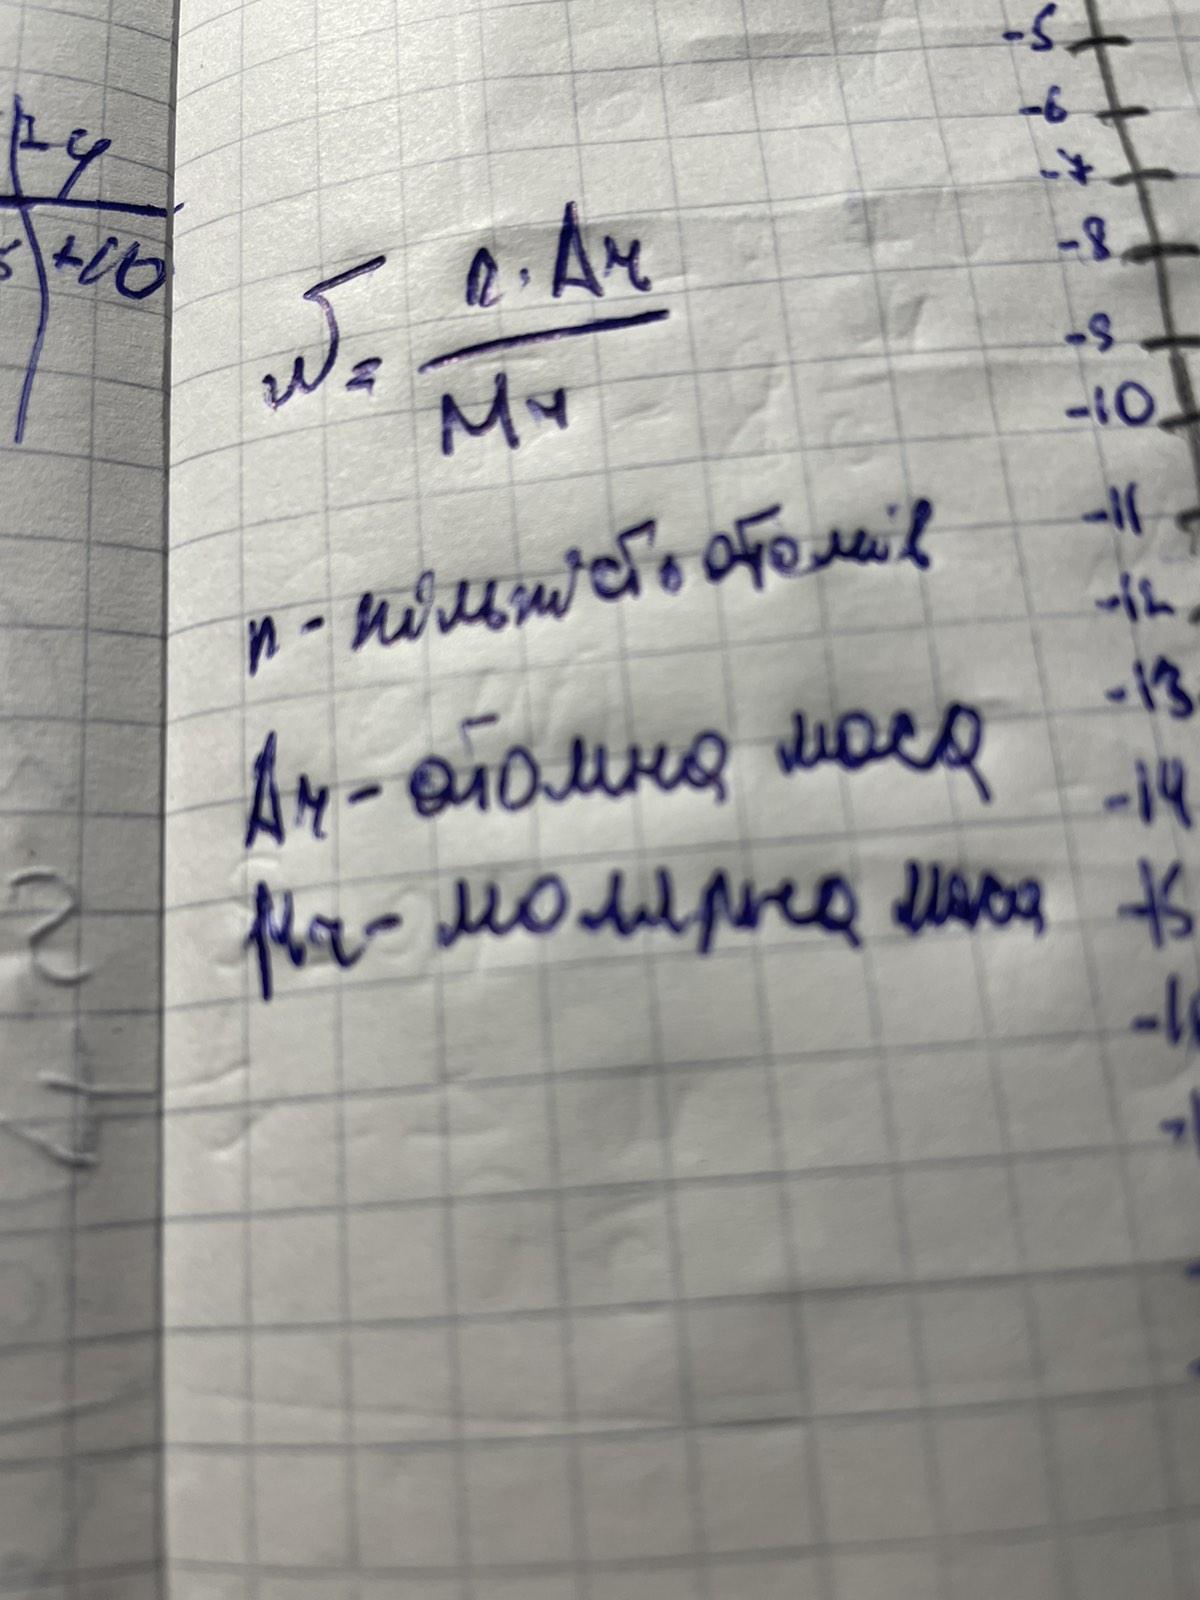 1 4
5 +10
-5
-6
-7
-8
-9
-10
-11
-12
-13
-14
-15
W = n · Ar / Mr
n - кількість атомів
Ar - атомна маса
Mr - молярна маса